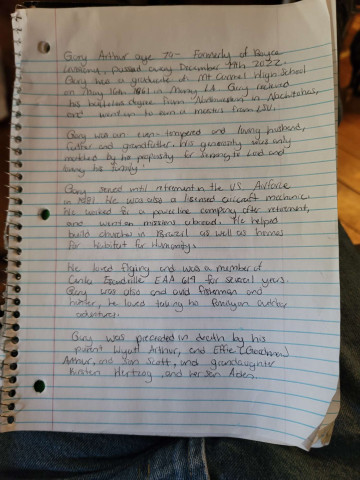 Gary Arthur age 70 - Formerly of Boyce
Louisiana, passed away December 9th 2022.
Gary was a graduate of Mt Carmel High School
on May 16th 1961 in Many LA. Gary recieved
his bachelors degree from Northwestern in Natchitoches,
and went on to earn a masters from LSU.
Gary was an even-tempered and loving husband,
father and grandfather. His generosity was only
matched by his propensity for serving the Lord and
loving his family.
Gary served until retirement in the US Airforce
in 1981. He was also a licensed aircraft mechanic.
He worked for a powerline company after retirement,
and went on missions abroad. He helped
build churches in Brazil as well as homes
for Habitat for Humanity.
He loved flying and was a member of
EAA 614 for several years.
Gary was also and avid fisherman and
hunter, he loved taking his family on outdoor
adventures.
Gary was preceeded in death by his
parent Wyatt Arthur, and Effie
Arthur, and son Scott, and grandaughter
Kirsten Hertzog, and her son Aden.